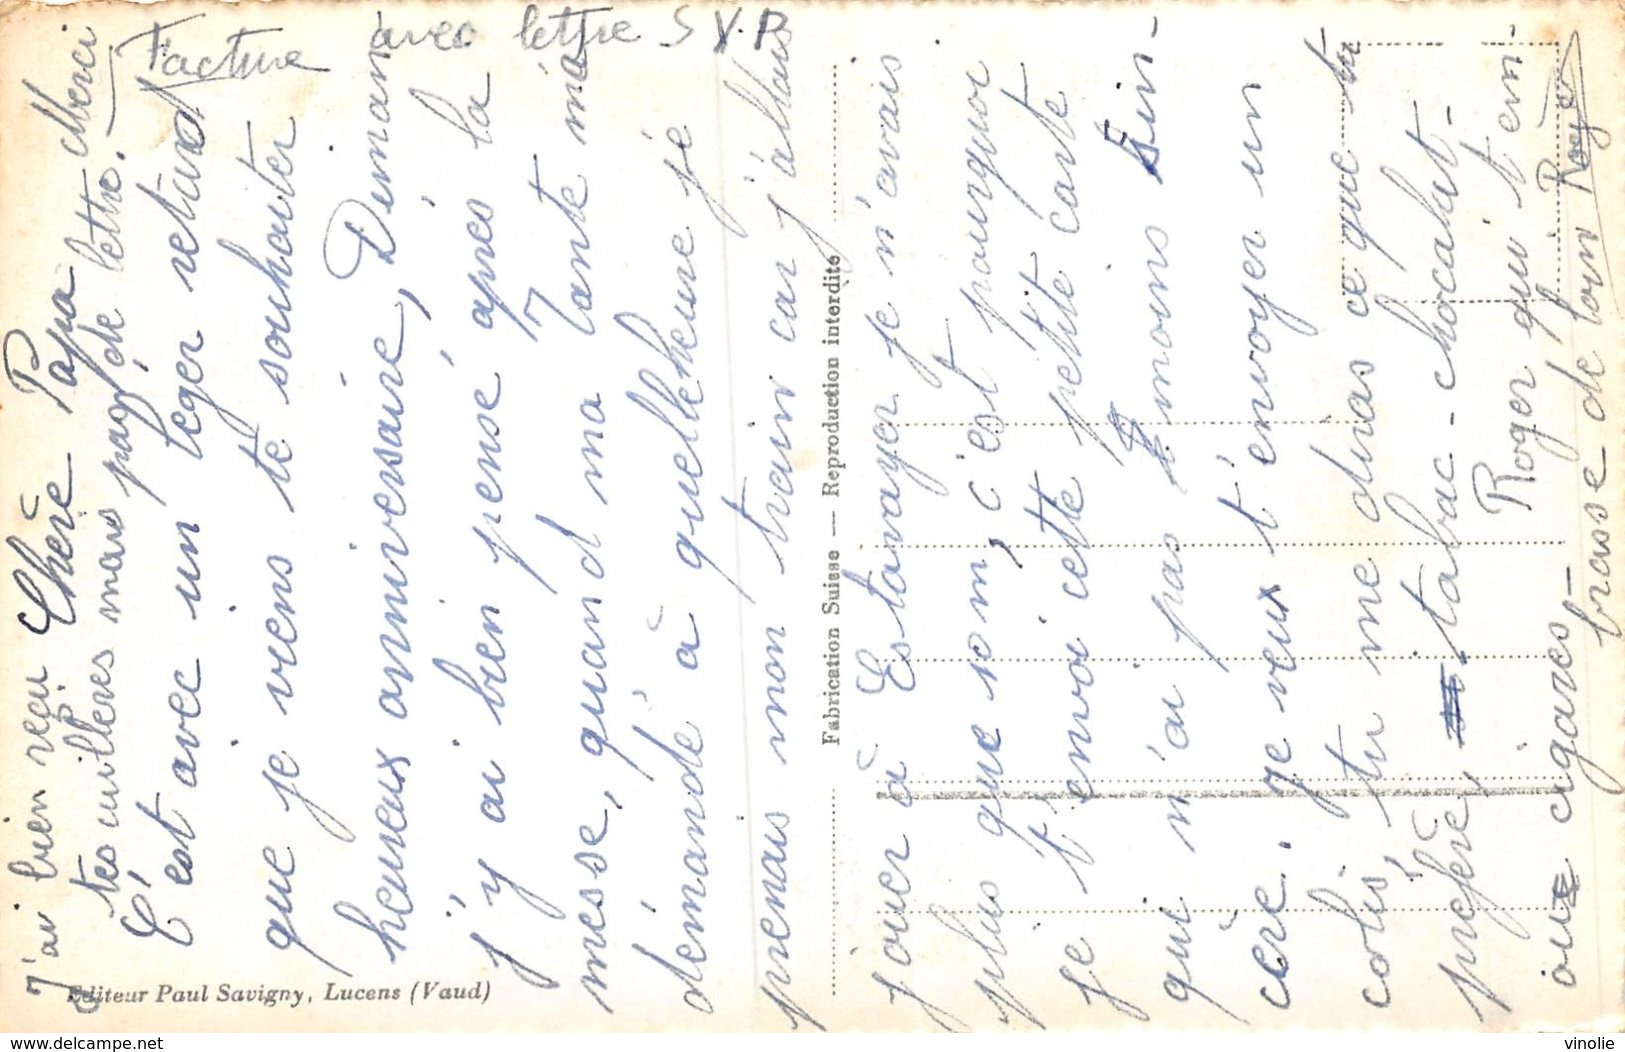 Facture avec lettre S.V.P.
J'ai bien reçu
tes cuillères mais pas de lettre. Merci
Chère Papa
C'est avec un léger retard
que je viens te souhaiter
heureux anniversaire, Diman
j'y ai bien pensé après la
messe, quand ma Tante m'a
démandé à quelleheure je
prenais mon train car j'allais
jouer à Estavayer je n'avais
plus que 10 m, c'est pourquoi
je t'envoi cette petite carte
qui n'ai pas moins sin-
cère. je veux t'envoyer un
colis, tu me diras ce que tu
préfère, tabac-chocalat-
ou cigares- Roger qui t'em-
brasse de loin Roger
Editeur Paul Savigny, Lucens (Vaud)
Fabrication Suisse — Reproduction interdite
delcampe.net
vinolie